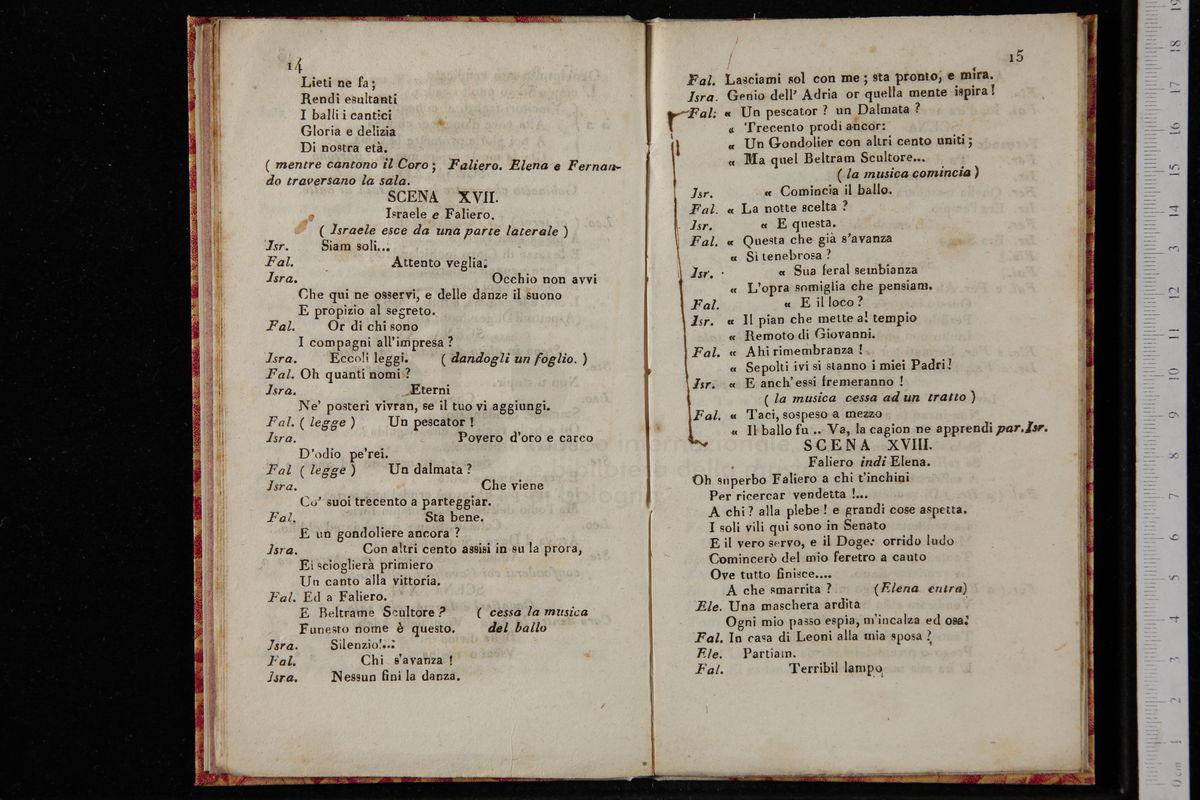 14
Lieti ne fa;
Rendi esultanti
I balli i cantici
Gloria e delizia
Di nostra età.
( mentre cantono il Coro; Faliero. Elena e Fernan-
do traversano la sala.
SCENA XVII.
Israele e Faliero.
( Israele esce da una parte laterale )
Isr. Siam soli...
Fal. Attento veglia.
Isra. Occhio non avvi
Che qui ne osservi, e delle danze il suono
E propizio al segreto.
Fal. Or di chi sono
I compagni all'impresa ?
Isra. Eccoli leggi. ( dandogli un foglio. )
Fal. Oh quanti nomi ?
Isra. Eterni
Ne' posteri vivran, se il tuo vi aggiungi.
Fal. ( legge ) Un pescator !
Isra. Povero d'oro e carco
D'odio pe'rei.
Fal ( legge ) Un dalmata ?
Isra. Che viene
Co' suoi trecento a parteggiar.
Fal. Sta bene.
E un gondoliere ancora ?
Isra. Con altri cento assisi in su la prora,
Ei scioglierà primiero
Un canto alla vittoria.
Fal. Ed a Faliero.
E Beltrame Scultore ? ( cessa la musica
Funesto nome è questo. del ballo
Isra. Silenzio!...
Fal. Chi s'avanza !
Isra. Nessun finì la danza.
15
Fal. Lasciami sol con me ; sta pronto, e mira.
Isra. Genio dell' Adria or quella mente ispira!
Fal. « Un pescator ? un Dalmata ?
« Trecento prodi ancor:
« Un Gondolier con altri cento uniti ;
« Ma quel Beltram Scultore...
( la musica comincia )
Isr. « Comincia il ballo.
Fal. « La notte scelta ?
Isr. « E questa.
Fal. « Questa che già s'avanza
« Si tenebrosa ?
Isr. « Sua feral sembianza
« L'opra somiglia che pensiam.
Fal. « E il loco ?
Isr. « Il pian che mette al tempio
« Remoto di Giovanni.
Fal. « Ahi rimembranza !
« Sepolti ivi si stanno i miei Padri!
Isr. « E anch'essi fremeranno !
( la musica cessa ad un tratto )
Fal. « Taci, sospeso a mezzo
« Il ballo fu .. Va, la cagion ne apprendi par.Isr.
SCENA XVIII.
Faliero indi Elena.
Oh superbo Faliero a chi t'inchini
Per ricercar vendetta !...
A chi ? alla plebe ! e grandi cose aspetta.
I soli vili qui sono in Senato
E il vero servo, e il Doge: orrido ludo
Comincerò del mio feretro a canto
Ove tutto finisce....
A che smarrita ? (Elena entra)
Ele. Una maschera ardita
Ogni mio passo espia, m'incalza ed osa.
Fal. In casa di Leoni alla mia sposa ?
Ele. Partiam.
Fal. Terribil lampo